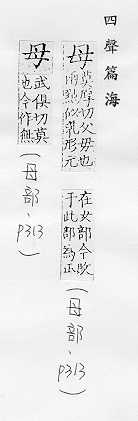 四聲篇海
母 莫厚切父母也
兩點似乳形元
在女部今改
于此部為正
(母部、p313)
毋 武俱切莫
也今作無
(母部、p313)